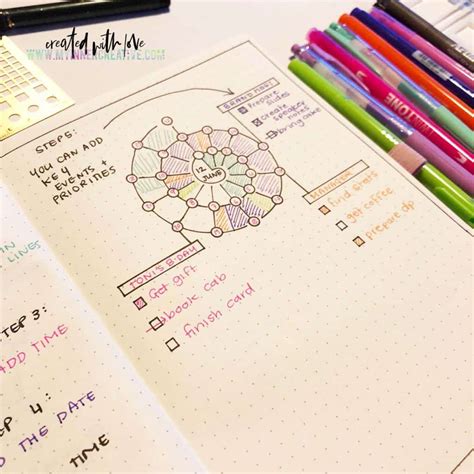 created with love
WWW.MYINNERCREATIVE.COM
STEP 5:
YOU CAN ADD
KEY
EVENTS +
PRIORITIES
12
JUNE
BRAND
Prepare
slides
create
speaker
notes
bring cake
MANAGER
find stats
get coffee
prepare dp
TONI'S B-DAY
Get gift
book cab
finish card
IN
LINES
TEP 3:
ADD TIME
EP 4:
D THE DATE
TIME